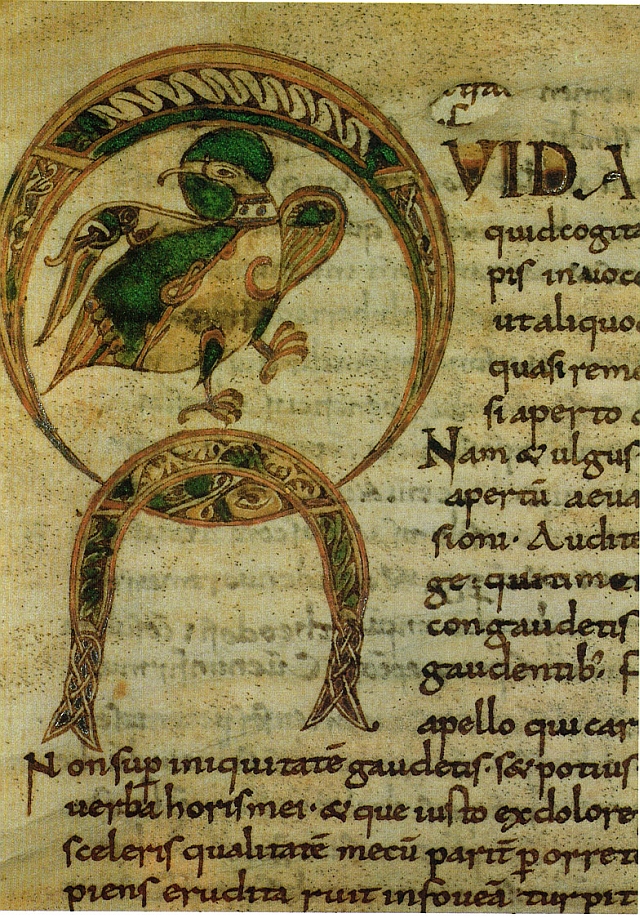 VIDA
quidcogita
pis inuoce
utaliquod
quasi reme
si aperto
Nam & uulgus
apertū aeua
sioni. Audite
ge; qui time
congaudetis
gaudentib; F
apello qui car
Non sup iniquitatē gaudetis. sed potius
uerba horis mei. & que iusto exdolore
sceleris qualitatē mecū parit porret
piens erudita ruit infoueā turpit